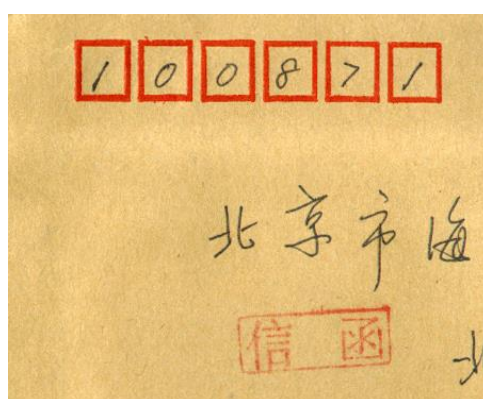 100871
北京市海
信函